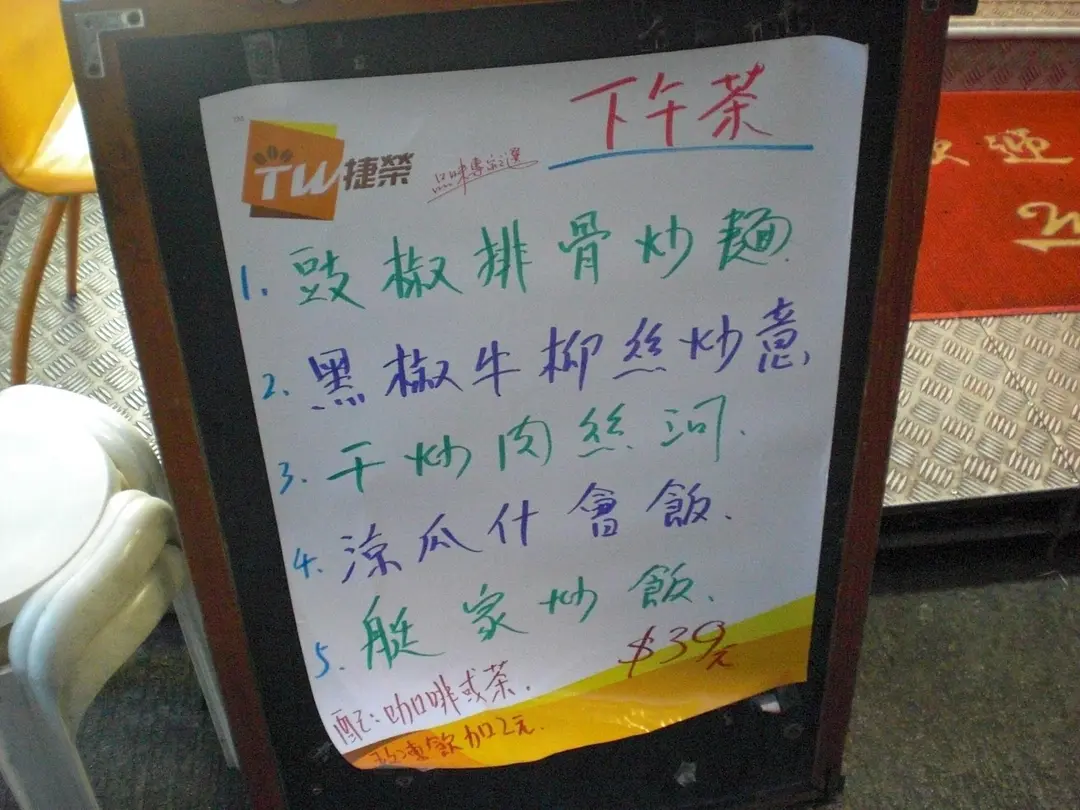 下午茶
TM
TW 捷榮
品味專家之選
1. 豉椒排骨炒麵.
2. 黑椒牛柳絲炒意
3. 干炒肉絲河.
4. 涼瓜什會飯.
5. 艇家炒飯.
$39元
配:咖啡或茶.
凍飲加2元.
迎